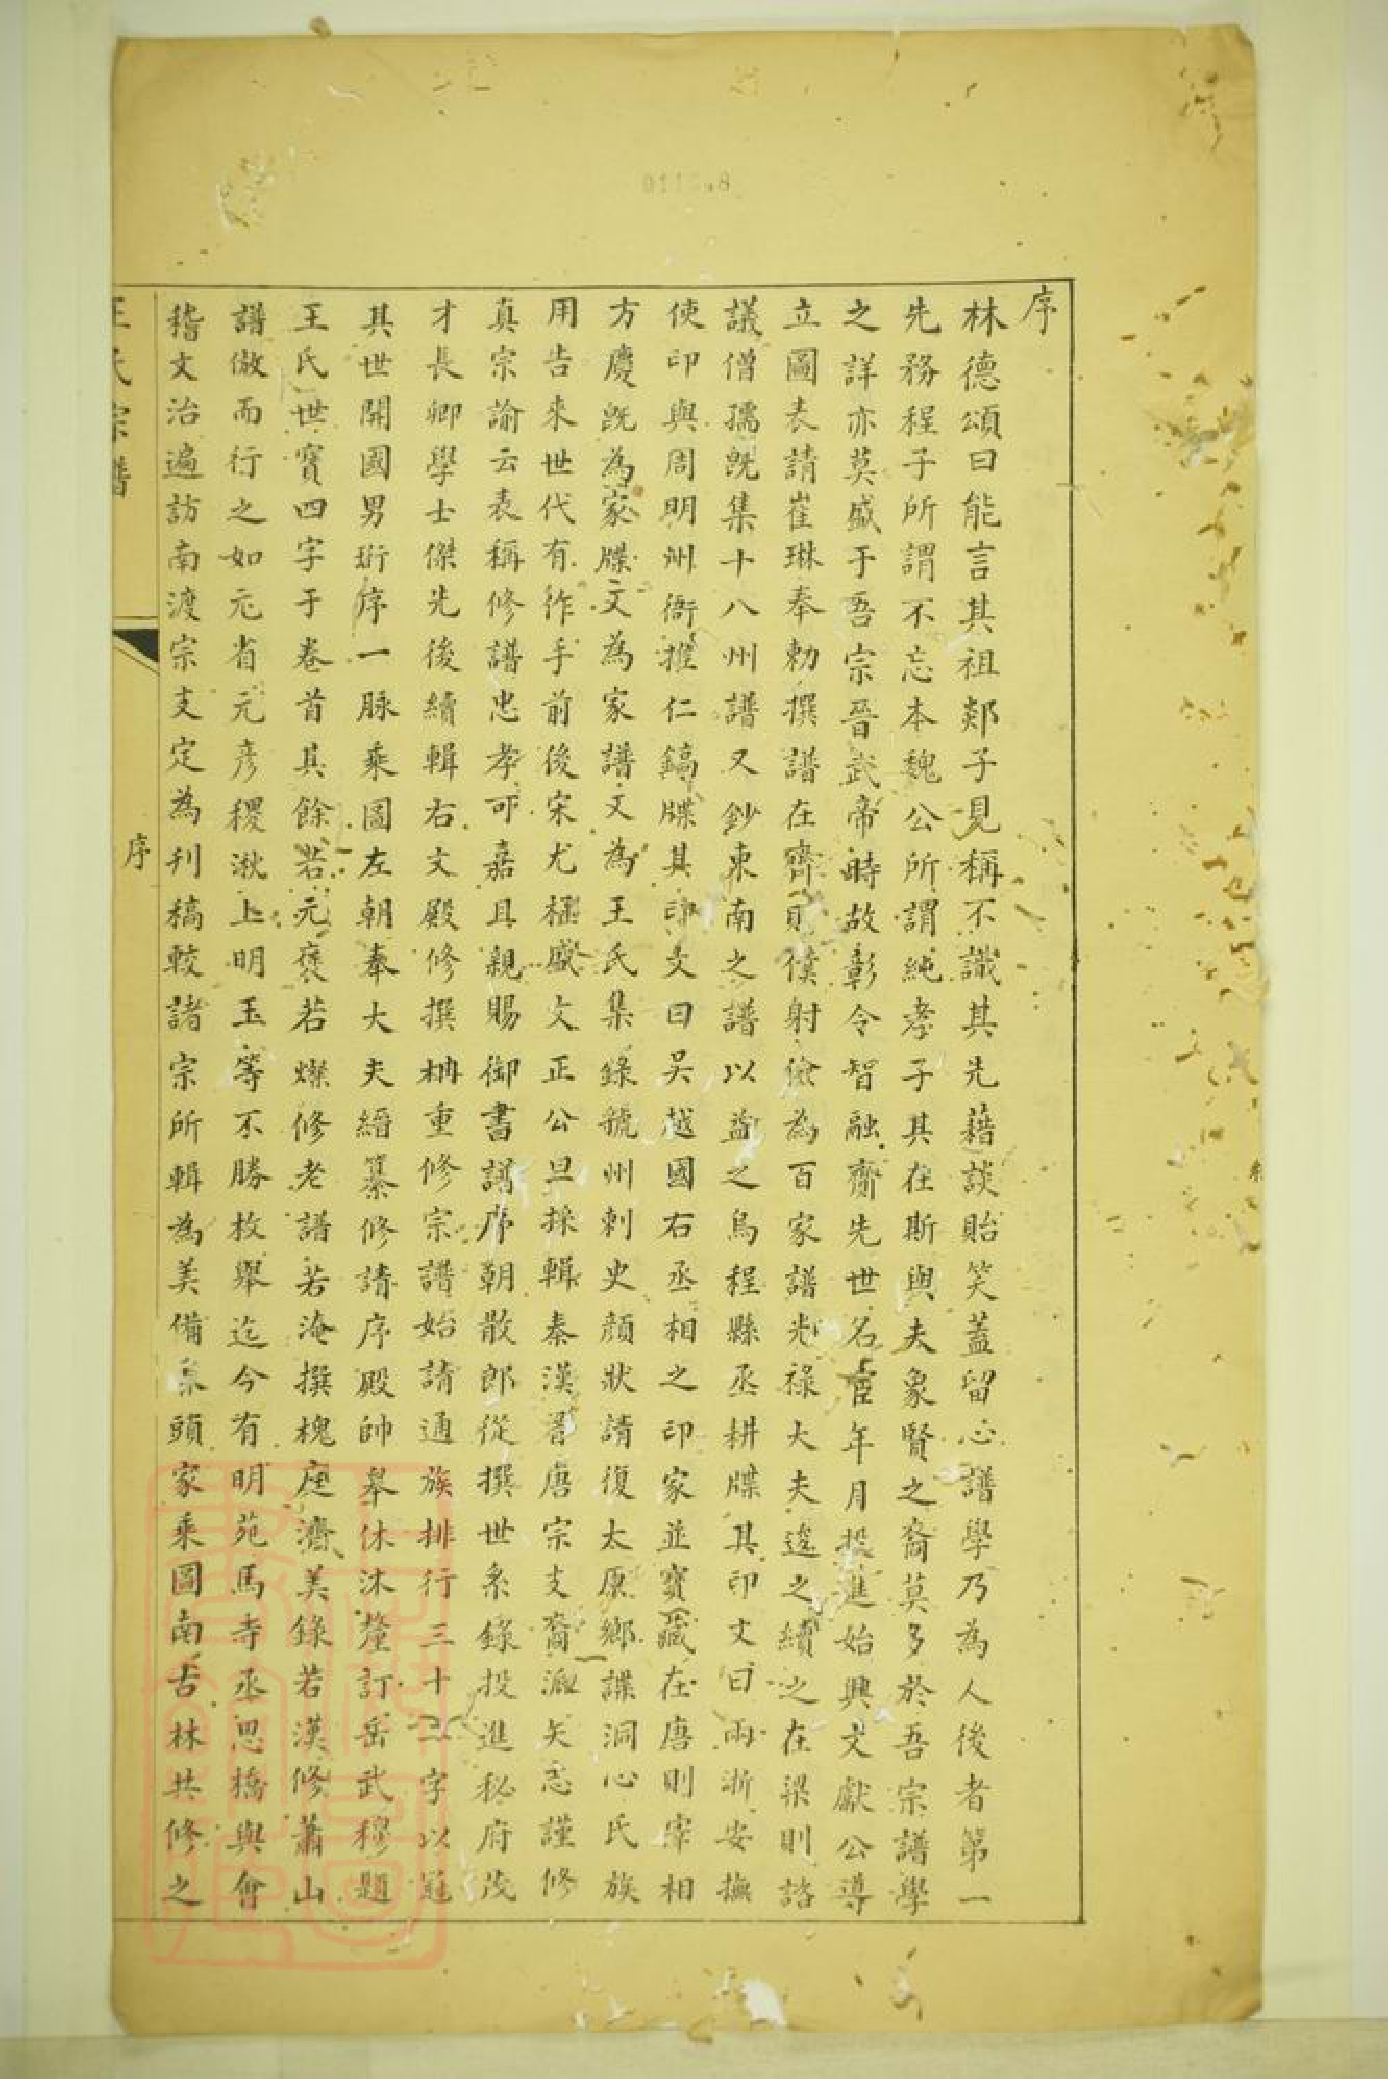 序
林德頌曰能言其祖郯子見稱不識其先藉談貽笑蓋留心譜學乃為人後者第一
先務程子所謂不忘本魏公所謂純孝子其在斯與夫象賢之裔莫多於吾宗譜學
之詳亦莫盛于吾宗晉武帝時故彰令智融齋先世名宦年月投進始興文獻公導
立圖表請崔琳奉勅撰譜在齊則僕射儉為百家譜光祿大夫逡之續之在梁則諮
議僧孺既集十八州譜又鈔東南之譜以益之烏程縣丞耕牒其印文曰兩浙安撫
使印與周明州衙推仁鎬牒其印文曰吳越國右丞相之印家並寶藏在唐則宰相
方慶既為家牒文為家譜文為王氏集錄虢州刺史顏狀請復太原鄉諜洞心氏族
用告來世代有作手前後宋尤極盛文正公旦採輯秦漢晉唐宗支裔派矢志謹修
真宗諭云表稱修譜忠孝可嘉且親賜御書譜序朝散郎從撰世系錄投進秘府茂
才長卿學士傑先後續輯右文殿修撰柟重修宗譜始請通族排行三十二字以冠
其世開國男珩序一脉乘圖左朝奉大夫縉纂修請序殿帥舉休沐釐訂岳武穆題
王氏世寶四字于卷首其餘若元褒若燦修老譜若淹撰槐庭濟美錄若漢修蕭山
譜倣而行之如元省元彥稷湫上明玉等不勝枚舉迄今有明苑馬寺丞思橋與會
稽文治遍訪南渡宗支定為刋稿較諸宗所輯為美備 頭家乘圖南古林共修之
王氏宗譜
序